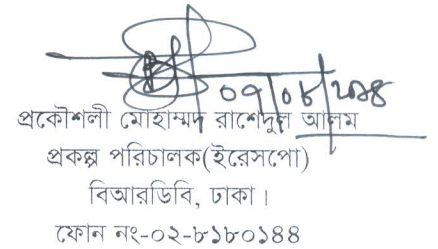 ০৭/০৮/২০১৪
প্রকৌশলী মোহাম্মদ রাশেদুল আলম
প্রকল্প পরিচালক(ইরেসপো)
বিআরডিবি, ঢাকা।
ফোন নং-০২-৮১৮০১৪৪